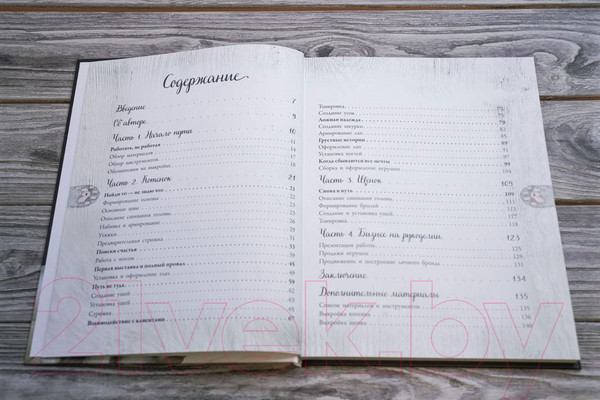 Содержание
Введение 7
Об авторе 9
Часть 1. Начало пути 10
Работать, не работая 11
Обзор материалов
Обзор инструментов
Обозначения на выкройке
Часть 2. Котенок 21
Найди то — не знаю что
Формирование основы
Основные швы
Описание снимания головы
Набивка и армирование
Утяжки
Предварительная стрижка
Поиски счастья
Работа с носом
Первая выставка и полный провал
Установка и оформление глаз
Путь не туда
Создание ушей
Установка ушей
Стрижка
Взаимодействие с клиентами
Тонировка
Создание усов
Ложная надежда 79
Создание шкурки
Армирование лап
Грустные истории 85
Оформление лап
Установка когтей
Когда сбываются все мечты
Сборка и оформление игрушки 99
Часть 3. Щенок 105
Снова в путь 109
Описание снимания головы
Формирование брылей
Создание и установка ушей
Тонировка
Часть 4. Бизнес на рукоделии 123
Презентация работы
Продажи игрушек
Продвижение и построение личного бренда
Заключение 134
Дополнительные материалы 135
Список материалов и инструментов 135
Выкройка котенка 136
Выкройка щенка 140
21vek.by